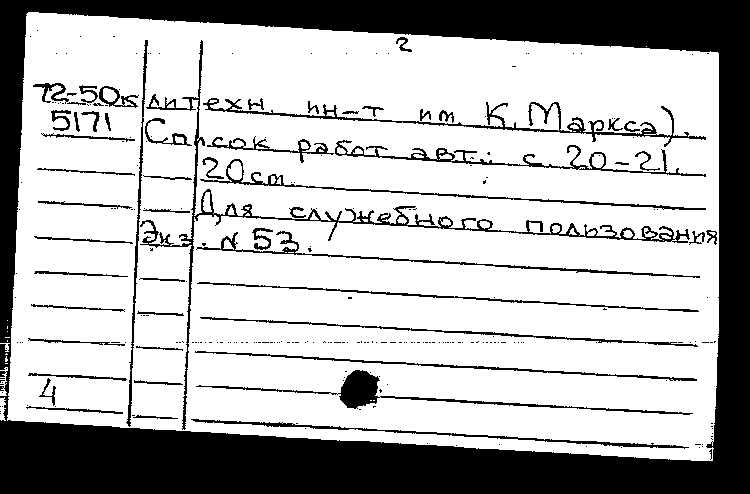 2
72-50к литехн. ин-т им. К. Маркса).
5171 Список работ авт.: с. 20-21.
20 см.
Для служебного пользования
Экз. № 53.
4